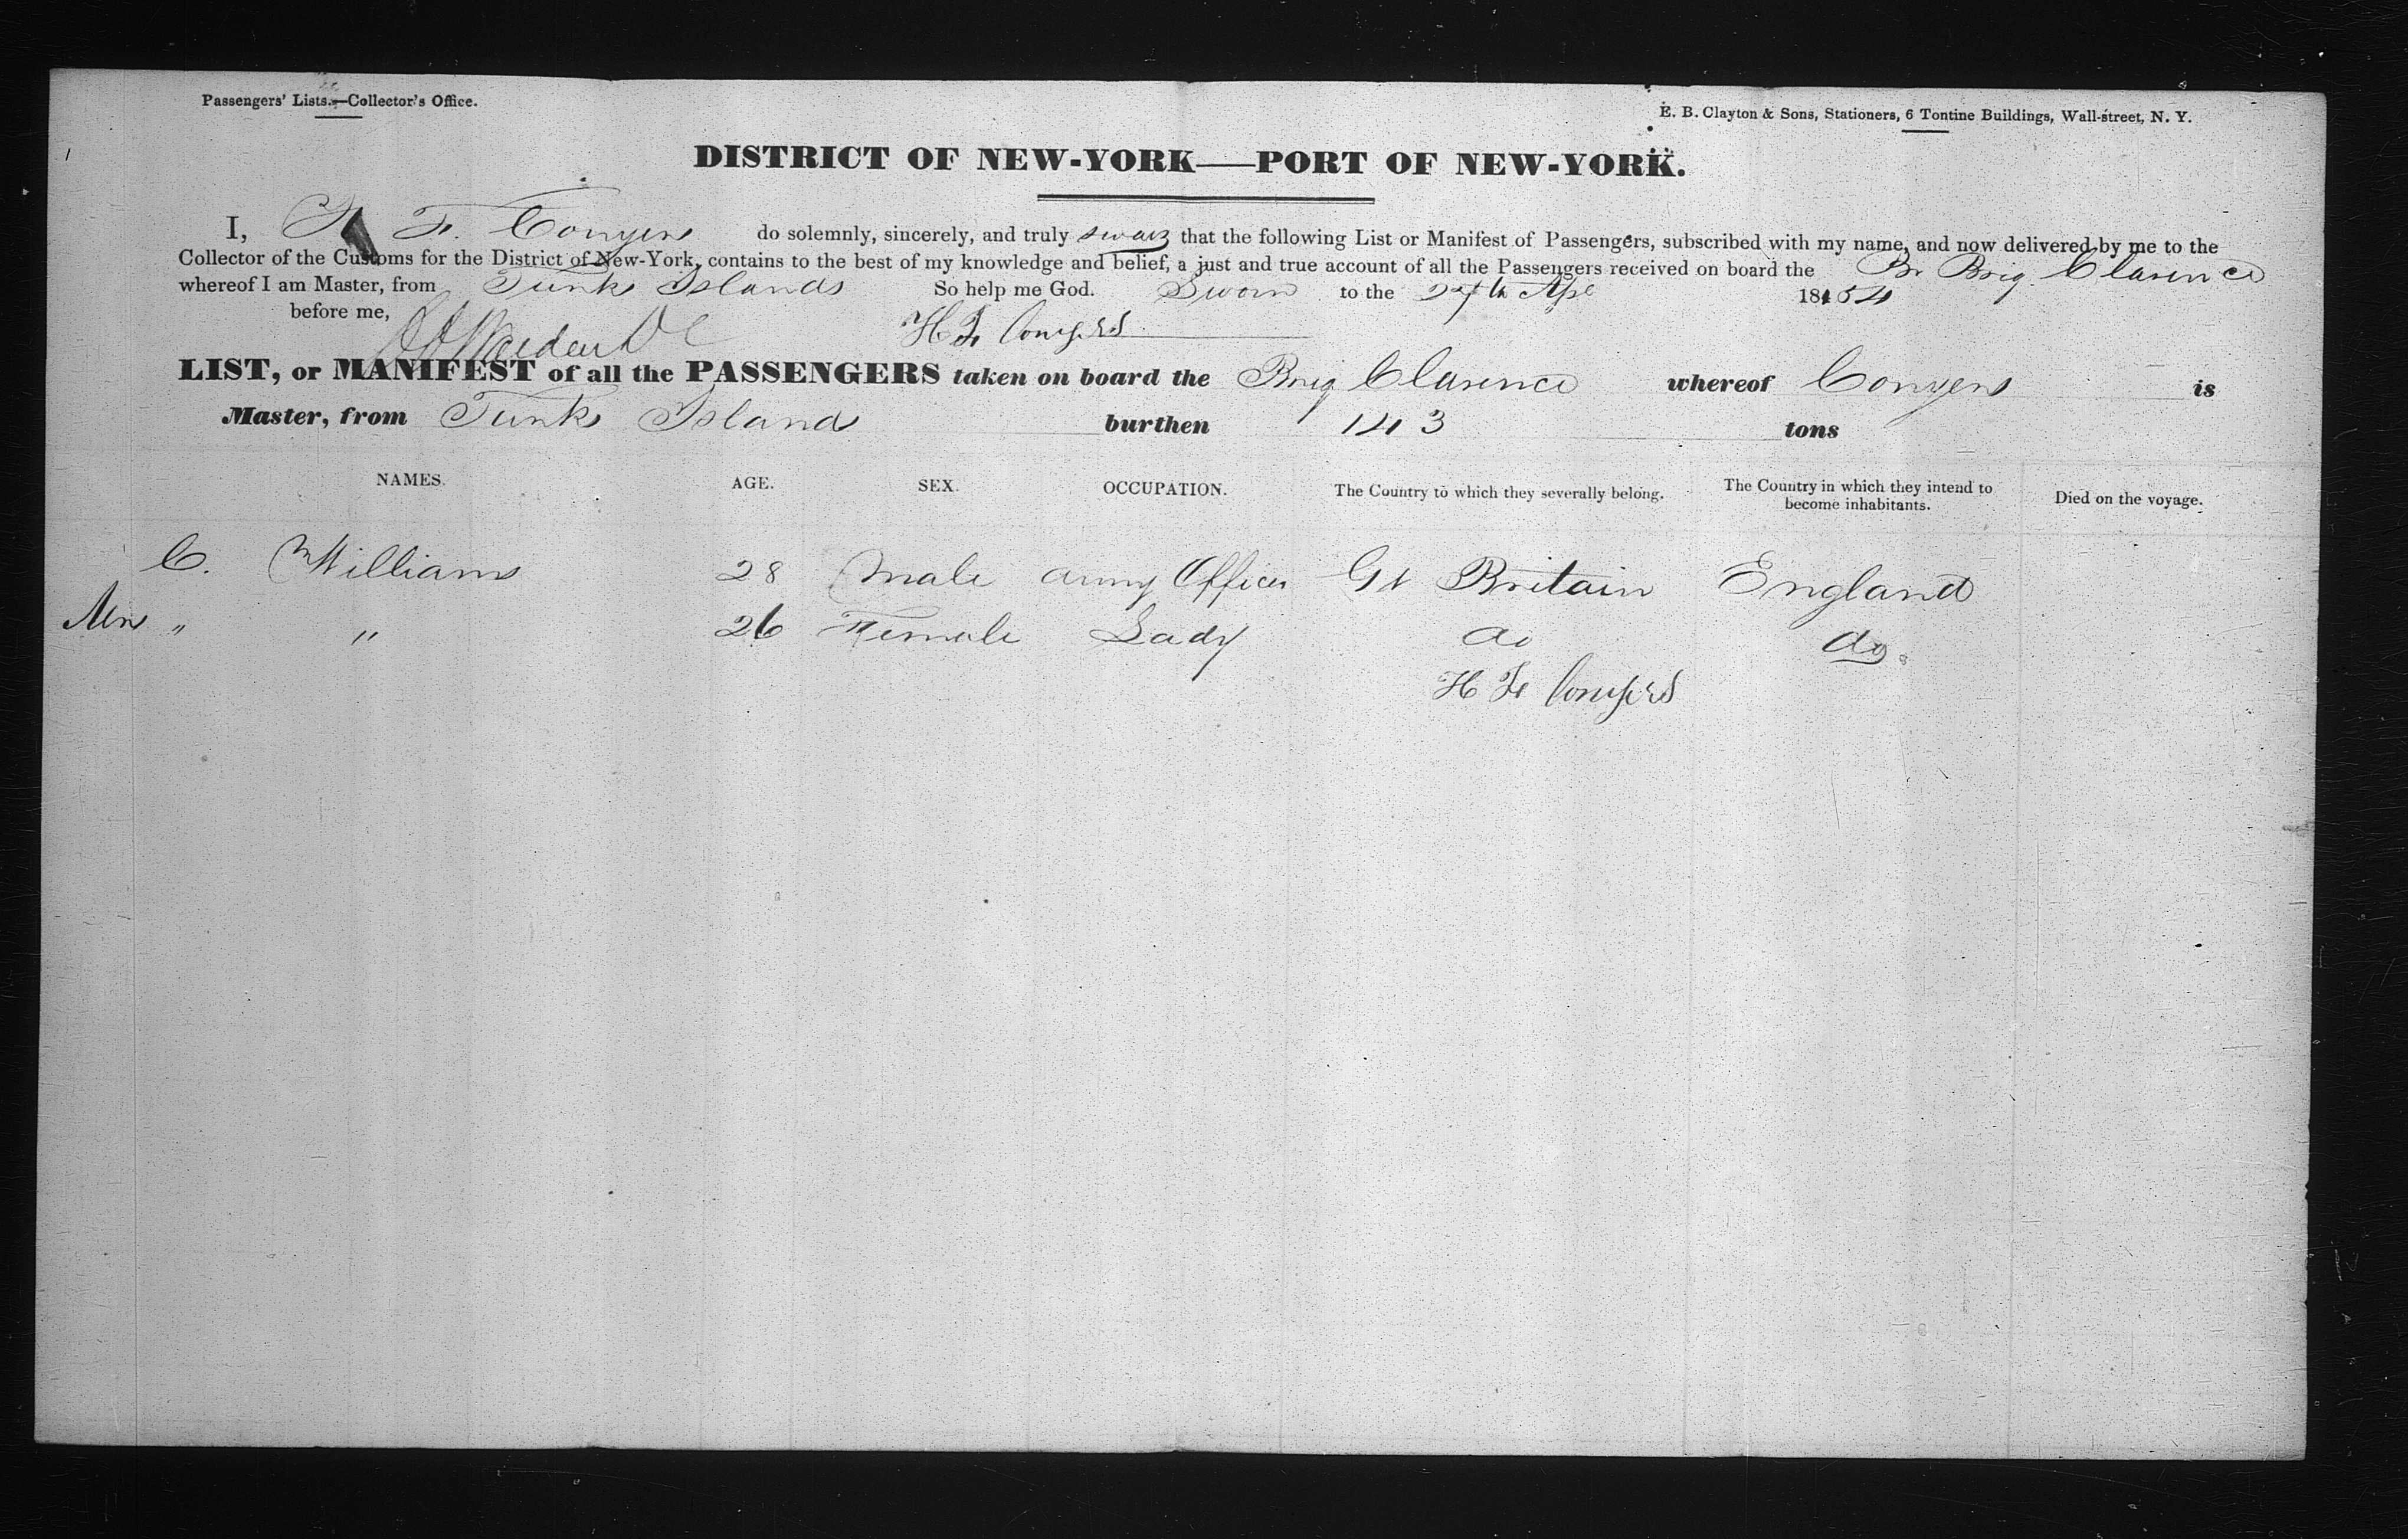 Passengers' Lists.—Collector's Office.
E. B. Clayton & Sons, Stationers, 6 Tontine Buildings, Wall-street, N. Y.
DISTRICT OF NEW-YORK—PORT OF NEW-YORK.
I, H F. Conyers do solemnly, sincerely, and truly swear that the following List or Manifest of Passengers, subscribed with my name, and now delivered by me to the
Collector of the Customs for the District of New-York, contains to the best of my knowledge and belief, a just and true account of all the Passengers received on board the Br Brig Clarence
whereof I am Master, from Turks Islands So help me God. Sworn to the 27th Apl 1854
before me, H F Conyers
LIST, or MANIFEST of all the PASSENGERS taken on board the Brig Clarence whereof Conyers is
Master, from Turks Island burthen 143 tons
NAMES. AGE. SEX. OCCUPATION. The Country to which they severally belong. The Country in which they intend to become inhabitants. Died on the voyage.
C. Williams 28 Male Army Officer Gt Britain England
Mrs " " 26 Female Lady do do.
H F Conyers